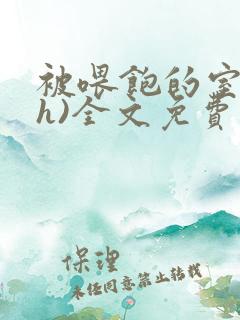 被喂饱的宝
h)全文免费
保理
未经同意禁止转载